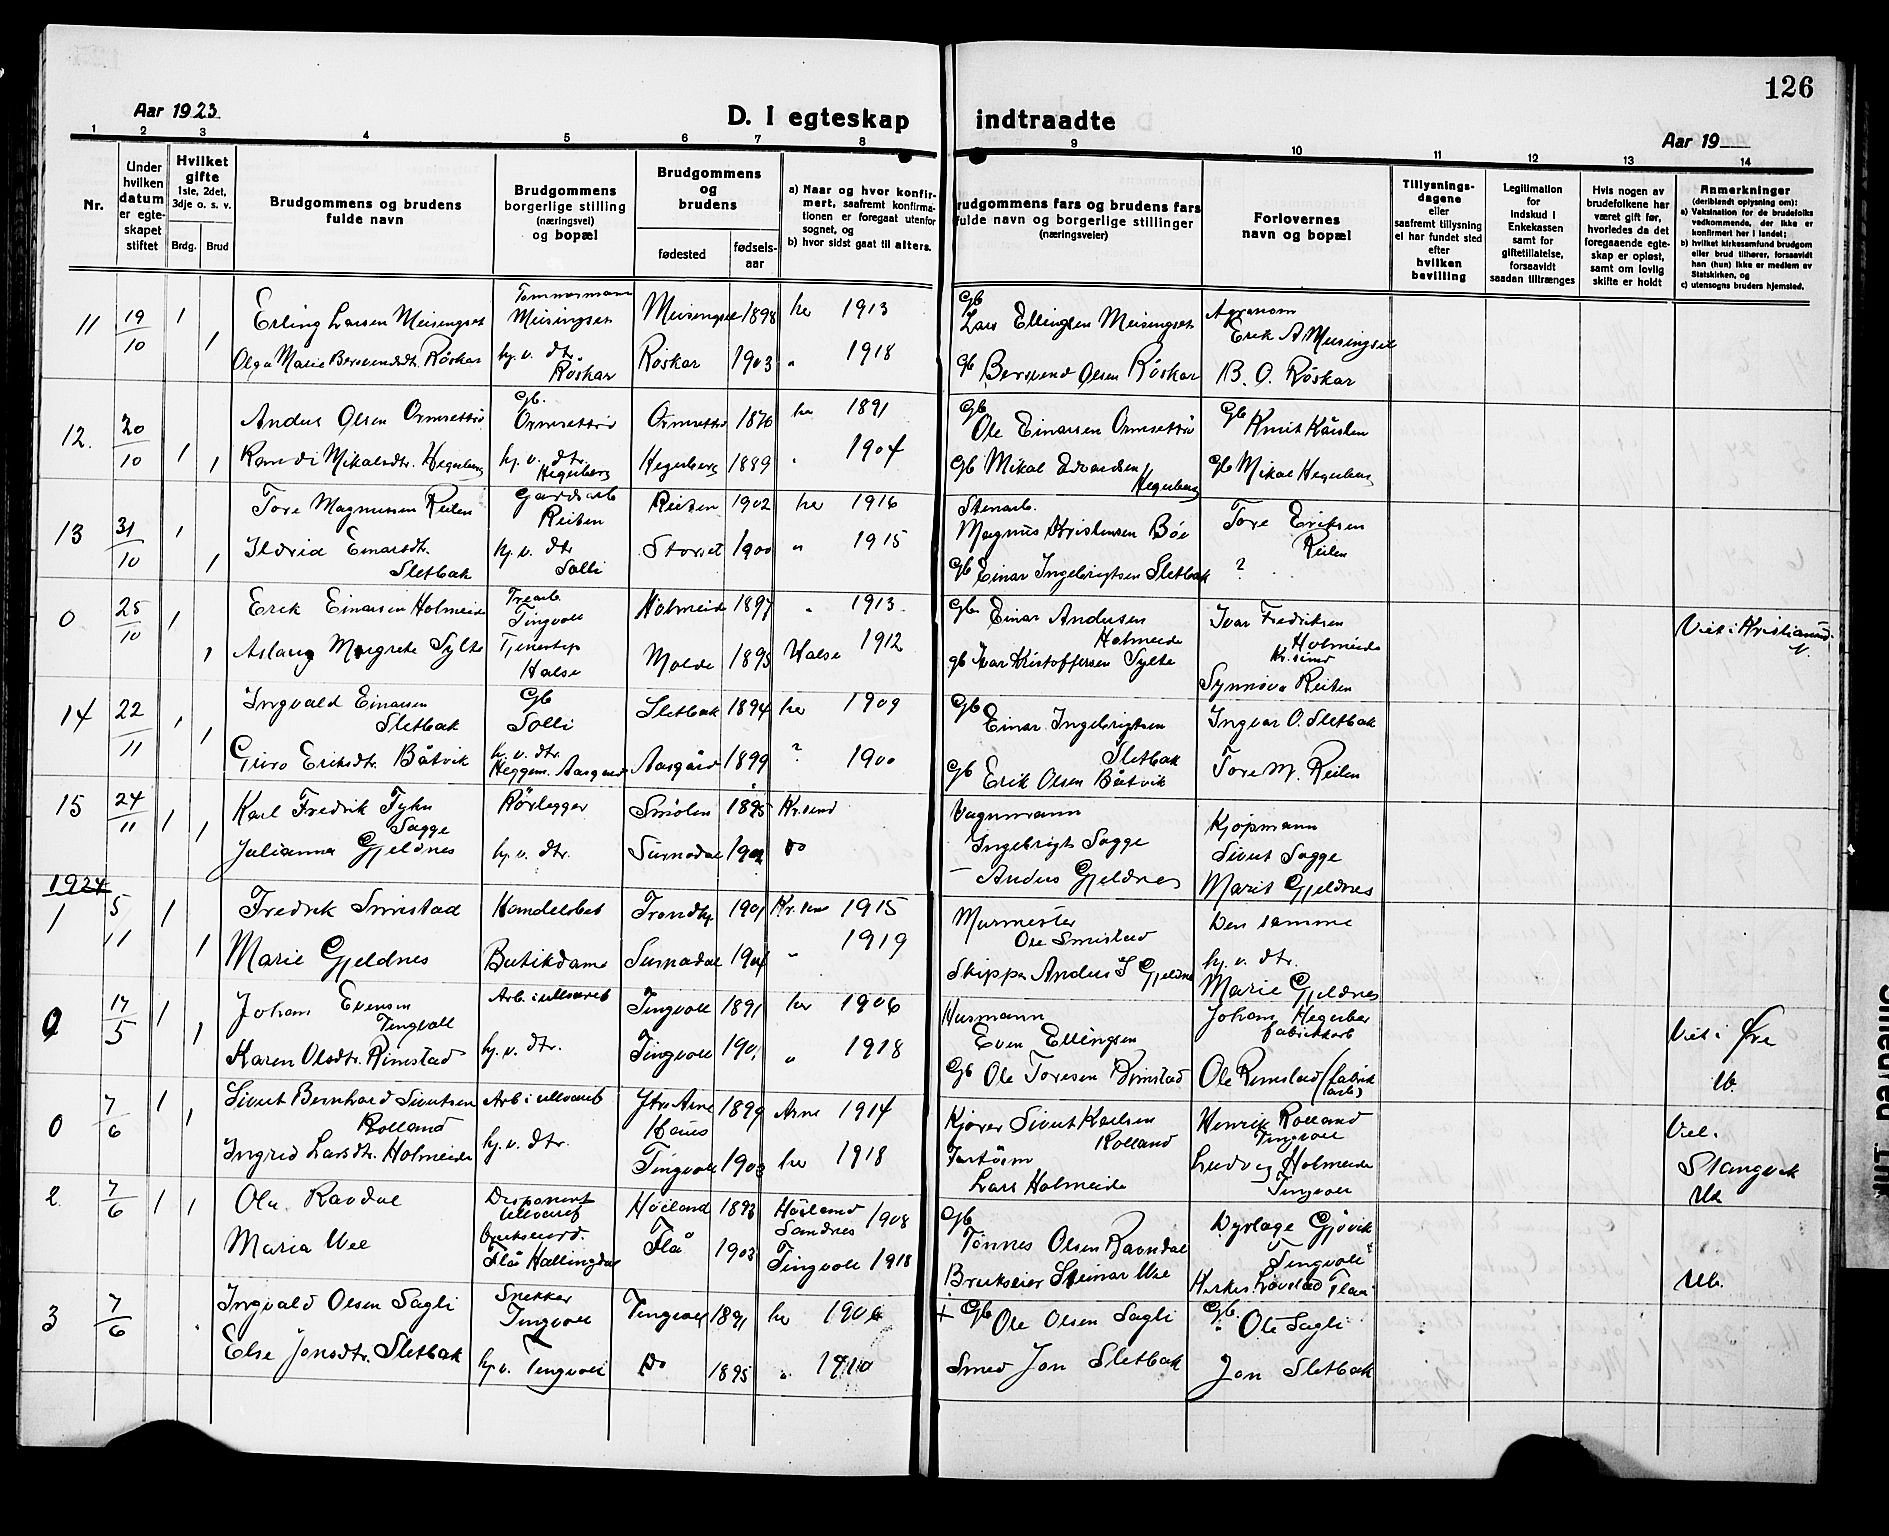 126
Aar 1923
D. I egteskap indtraadte
Aar 19
1 2 3 4 5 6 7 8 9 10 11 12 13 14
Nr.
Under hvilken datum er egteskapet stiftet
Hvilket gifte 1ste, 2det, 3dje o. s. v.
Brdg. Brud
Brudgommens og brudens fulde navn
Brudgommens borgerlige stilling (næringsvei) og bopæl
Brudgommens og brudens
fødested
fødsels-aar
a) Naar og hvor konfirmert, saafremt konfirmationen er foregaat utenfor sognet, og
b) hvor sidst gaat til alters.
rudgommens fars og brudens fars fulde navn og borgerlige stillinger (næringsveier)
Forlovernes navn og bopæl
Tillysningsdagene eller saafremt tillysning ei har fundet sted efter hvilken bevilling
Legitimation for indskud i Enkekassen samt for giftetillatelse, forsaavidt saadan tiltrænges
Hvis nogen av brudefolkene har været gift før, hvorledes da det foregaaende egteskap er opløst, samt om lovlig skifte er holdt
Anmerkninger (deriblandt oplysning om):
a) Vaksination for de brudefolks vedkommende, der ikke er konfirmert her i landet;
b) hvilket kirkesamfund brudgom eller brud tilhører, forsaavidt han (hun) ikke er medlem av Statskirken, og
c) utensogns bruders hjemsted.
11 19/10 1 Erling Larsen Meisingset Tømmermann Meisingset Meisingset 1898 her 1913 Gb Lars Ellingsen Meisingset Agronom Erik A Meisingset
1 Olga Marie Bersvendsdtr. Röskar hj. v. dtr. Röskar Röskar 1903 " 1918 Gb Bersvend Olsen Röskar B. O. Röskar
12. 20/10 1 Anders Olsen Ormsettrö Gb. Ormsettrö 1876 her 1891 Gb Ole Einarsen Ormsettrö Gb Knut
1 Mikalsdtr. Hegerberg hj. v. dtr. Hegerberg Hegerberg 1889 " 1904 Gb Mikal Edvardsen Hegerberg Gb Mikal Hegerberg
13 31/10 1 Tore Magnussen Reiten Gardsarb Reiten Reiten 1902 her 1916 Stenarb. Magnus Kristensen Böe Tore Eriksen Reiten
1 Ildrid Einarsdtr. Sletbak hj. v. dtr Solli 1900 " 1915 Gb Einar Ingebrigtsen Sletbak ?
0 25/10 1 Erik Einarsen Holmeide Trearb. Tingvoll Holmeide 1897 " 1913 Gb. Einar Andersen Holmeide Ivar Fredriksen Holmeide Kr.sund Viet i Kristiansund
1 Aslaug Margrete Sylte Halse Molde 1895 Halse 1912 gb Ivar Kristoffersen Sylte Synnöva Reiten
14 22/11 1 Ingvald Einarsen Sletbak Gb Solli Sletbak 1894 her 1909 Gb Einar Ingebrigtsen Sletbak Ingvar O. Sletbak
1 Guro Eriksdtr. Båtvik hj. v. dtr. Heggem. Aasgård Aasgård 1899 ? 1900 Gb Erik Olsen Båtvik Tore M. Reiten
15 24/11 1 Karl Fredrik Tyhn Sagge Rörlegger Smölen 1895 Kr.sund Vognmann Ingebrigt Sagge Kjöpmann Sivert Sagge
1 Julianna Gjeldnes hj. v. dtr. Surnadal Do - Anders Gjeldnes Marit Gjeldnes
1924
1 5/11 1 Fredrik Smistad Handelsbet Trondhj. 1901 Kr.sund 1915 Murmester Ole Smistad Den samme
1 Marie Gjeldnes Butikdame Surnadal 1904 " 1919 Skipper Anders I Gjeldnes hj. v. dtr. Marie Gjeldnes
0 17/5 1 Johan Evensen Tingvoll Arb. i ullvaref Tingvoll 1891 her 1906 Husmann Even Ellingsen Johan Hegerber fabrikkarb Viet i Øre
1 Karen Olsdtr. Rimstad hj. v. dtr. Tingvoll 1901 " 1918 Gb Ole Toresen Rimstad Ole Rimstad (fabrik arb)
0 7/6 1 Sivert Bernhard Sivertsen Rolland Arb i ullvaref Ytre Arne Haus 1899 Arne 1914 Kjörer Sivert Karlsen Rolland Henrik Rolland Tingvoll Viet. Stangvik
1 Ingrid Larsdtr. Holmeide hj. v. dtr. Tingvoll 1903 her 1918 Lars Holmeide Ludvig Holmeide Tingvoll
2 7/6 1 1 Ola Ravdal Disponent ullvaref Höiland 1893 Höiland Sandnes 1908 Gb Tönnes Olsen Ravndal Dyrlæge Gjövik Tingvoll
Maria Wee Flå Hallingdal Flå 1903 Tingvoll 1918 Brukseier Steinar Wee
3 7/6 Ingvald Olsen Sagli Snekker Tingvoll Tingvoll 1891 her 1906 + Gb Ole Olsen Sagli Gb. Ole Sagli
Else Jonsdtr. Sletbak hj v. Tingvoll Do 1895 " 1910 Smed Jon Sletbak Jon Sletbak